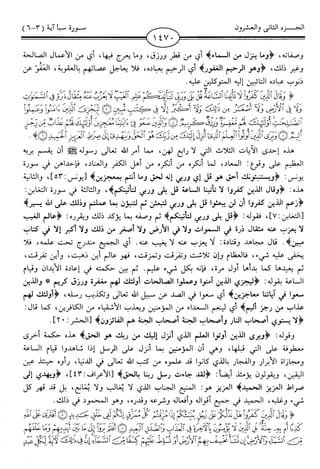 الجـــزء الثاني والعشرون
سورة سبأ آية (٣-٦)
١٤٧٠
وصفاته، ﴿وما ينزل من السماء﴾ أي من قطر ورزق، وما يعرج فيها، أي من الأعمال الصالحة
وغير ذلك، ﴿وهو الرحيم الغفور﴾ أي الرحيم بعباده، فلا يعاجل عصاتهم بالعقوبة، الغفور عن
ذنوب عباده التائبين إليه المتوكلين عليه.
هذه إحدى الآيات الثلاث التي لا رابع لهن، مما أمر الله تعالى رسوله ﷺ أن يقسم بربه
العظيم على وقوع: المعاد، لما أنكره من أنكره من أهل الكفر والعناد، فإحداهن في سورة
يونس: ﴿ويستنبئونك أحق هو قل إي وربي إنه لحق وما أنتم بمعجزين﴾ [يونس: ٥٣]، والثانية
هذه: ﴿وقال الذين كفروا لا تأتينا الساعة قل بلى وربي لتأتينكم﴾، والثالثة في سورة التغابن:
﴿زعم الذين كفروا أن لن يبعثوا قل بلى وربي لتبعثن ثم لتنبؤن بما عملتم وذلك على الله يسير﴾
[التغابن: ٧]، فقوله: ﴿قل بلى وربي لتأتينكم﴾ ثم وصفه بما يؤكد ذلك ويقرره: ﴿عالم الغيب
لا يعزب عنه مثقال ذرة في السموات ولا في الأرض ولا أصغر من ذلك ولا أكبر إلا في كتاب
مبين﴾. قال مجاهد وقتادة: لا يعزب عنه لا يغيب عنه. أي الجميع مندرج تحت علمه، فلا
يخفى عليه شيء، فالعظام وإن تلاشت وتفرقت وتمزقت، فهو عالم أين ذهبت، وأين تفرقت،
ثم يعيدها كما بدأها أول مرة، فإنه بكل شيء عليم. ثم بين حكمته في إعادة الأبدان وقيام
الساعة بقوله: ﴿ليجزي الذين آمنوا وعملوا الصالحات أولئك لهم مغفرة ورزق كريم * والذين
سعوا في آياتنا معاجزين﴾ أي سعوا في الصد عن سبيل الله تعالى وتكذيب رسله، ﴿أولئك لهم
عذاب من رجز أليم﴾ أي لينعم السعداء من المؤمنين ويعذب الأشقياء من الكافرين، كما قال:
﴿لا يستوي أصحاب النار وأصحاب الجنة أصحاب الجنة هم الفائزون﴾ [الحشر: ٢٠].
وقوله: ﴿ويرى الذين أوتوا العلم الذي أنزل إليك من ربك هو الحق﴾ هذه حكمة أخرى
معطوفة على التي قبلها، وهي أن المؤمنين بما أنزل على الرسل إذا شاهدوا قيام الساعة
ومجازاة الأبرار والفجار بالذي كانوا قد علموه من كتب الله تعالى في الدنيا، رأوه حينئذ عين
اليقين، ويقولون يومئذ أيضاً: ﴿لقد جاءت رسل ربنا بالحق﴾ [الأعراف: ٤٣]، ﴿ويهدي إلى
صراط العزيز الحميد﴾ العزيز هو: المنيع الجناب الذي لا يُغالب ولا يُمانع، بل قد قهر كل
شيء وغلبه، الحميد في جميع أقواله وأفعاله وشرعه وقدره، وهو المحمود في ذلك.